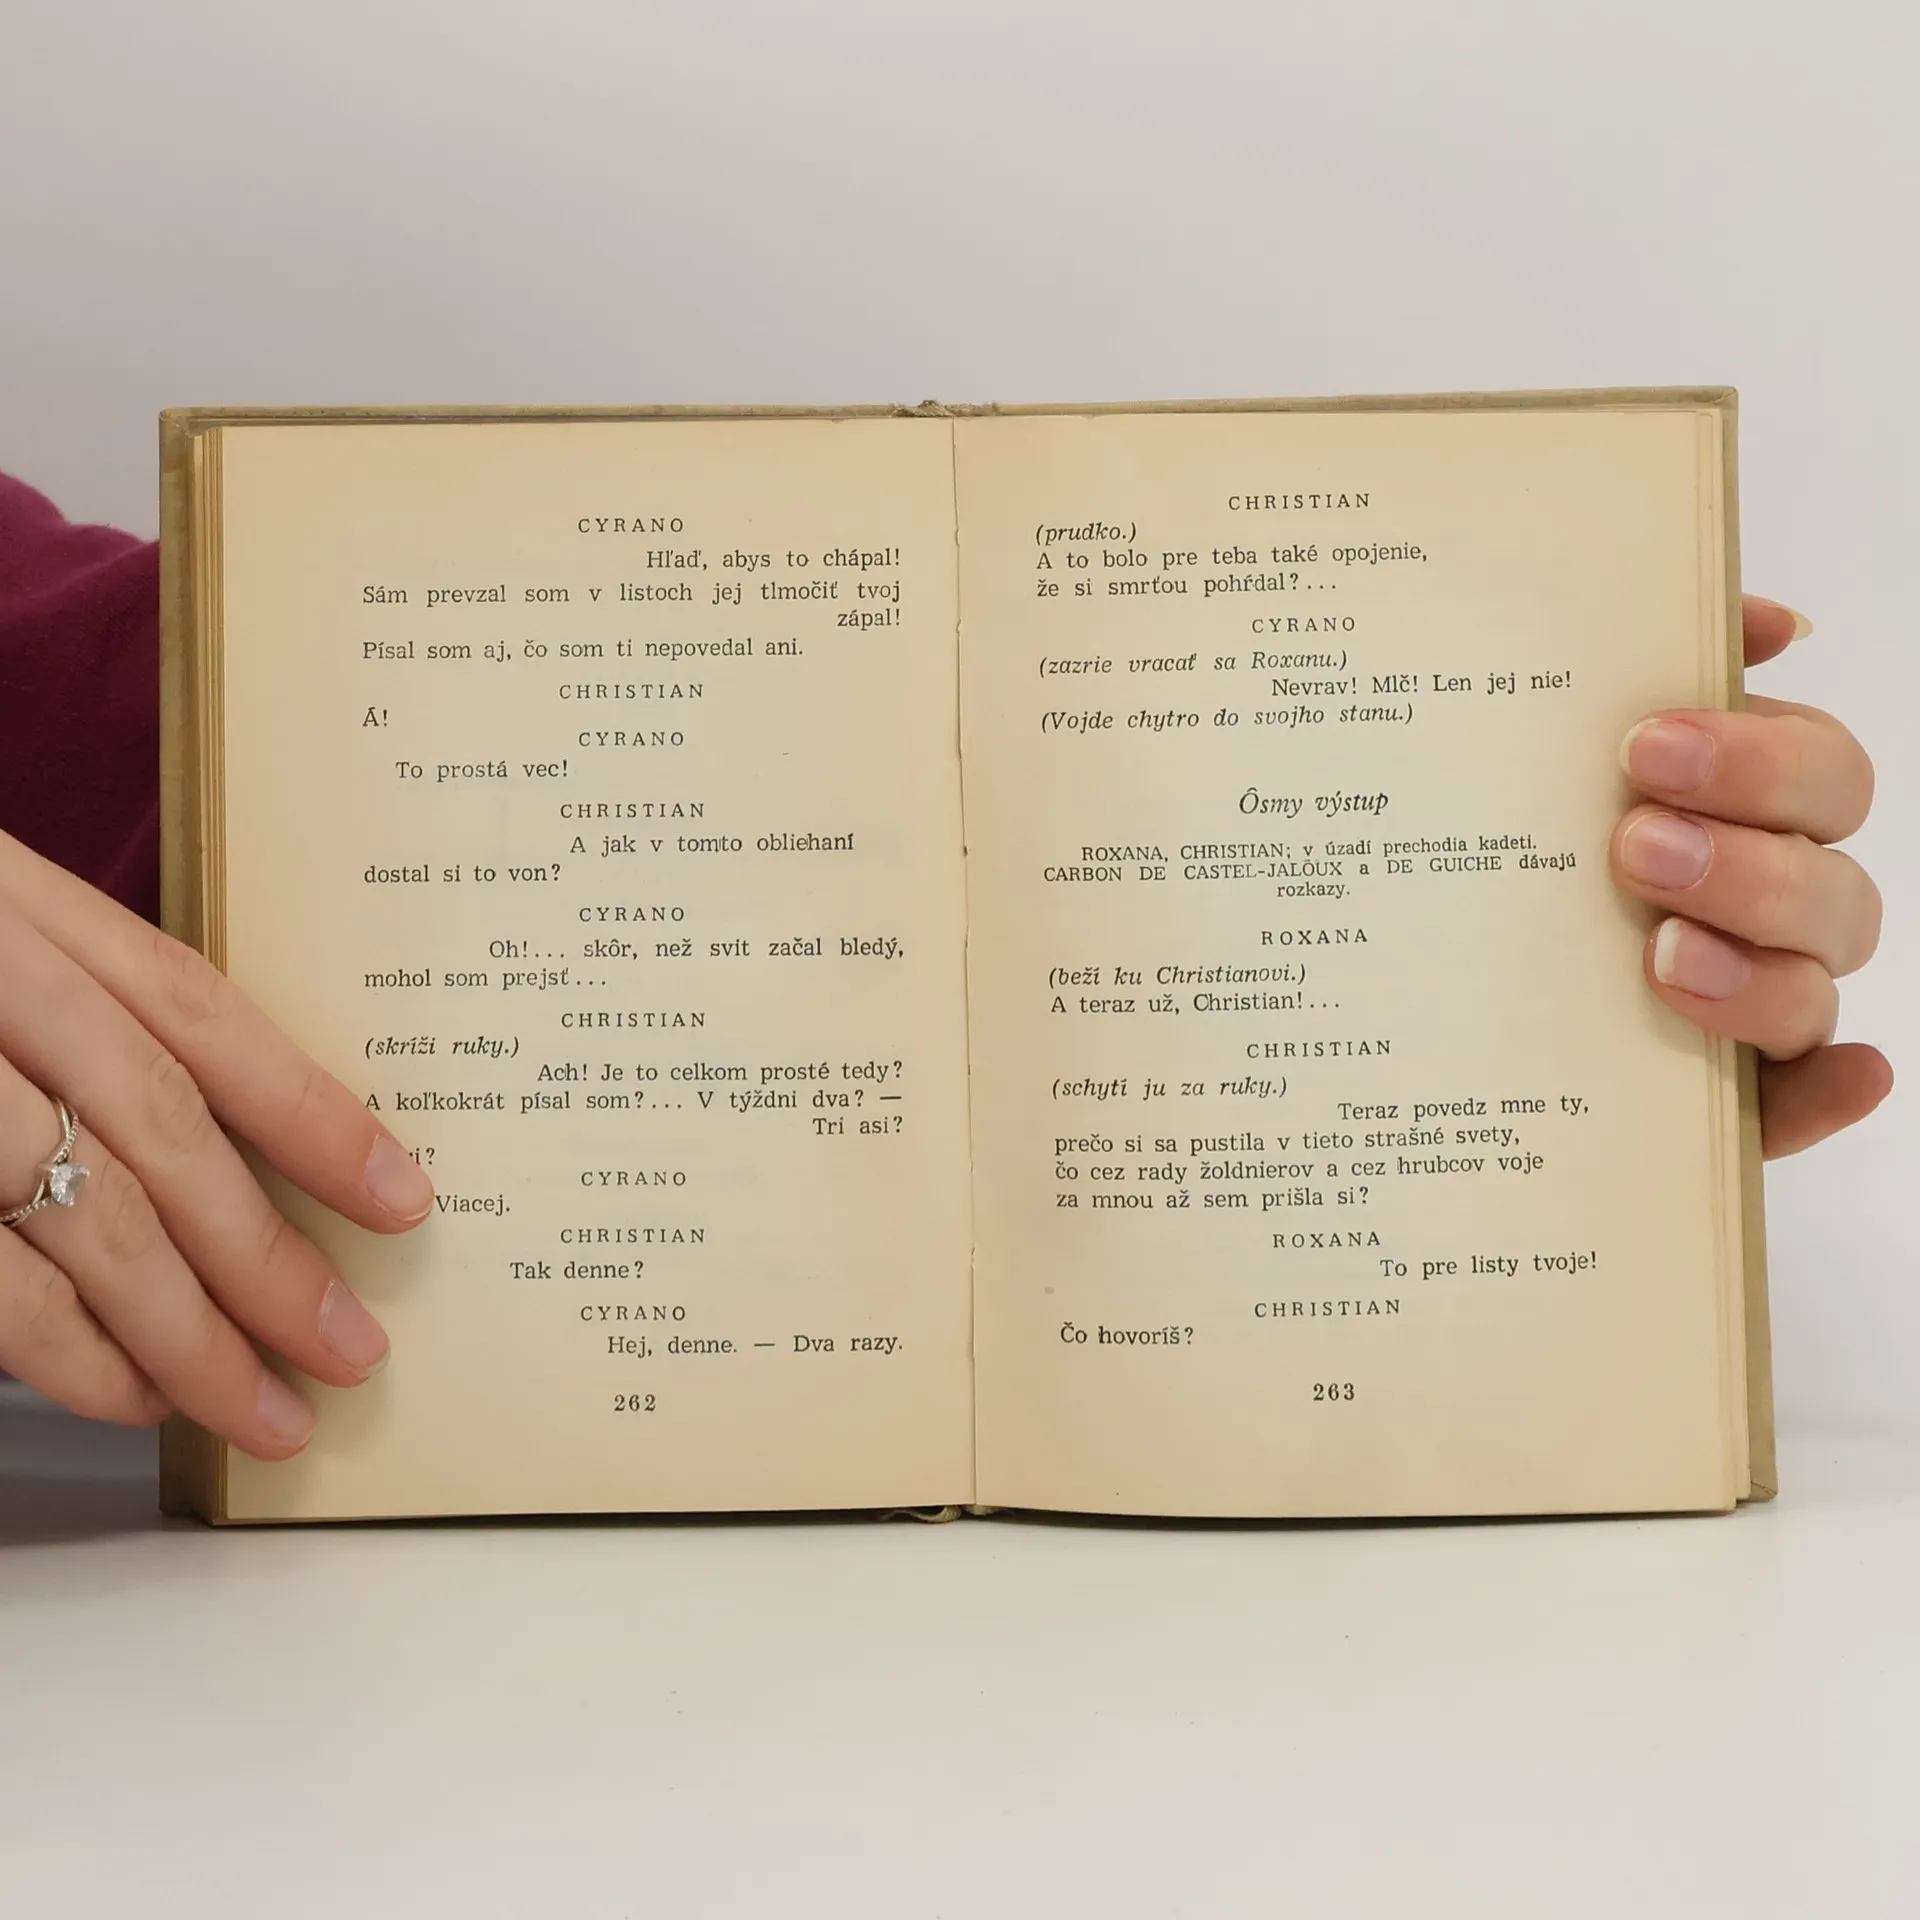 CYRANO
Hľaď, abys to chápal!
Sám prevzal som v listoch jej tlmočiť tvoj
zápal!
Písal som aj, čo som ti nepovedal ani.
CHRISTIAN
Á!
CYRANO
To prostá vec!
CHRISTIAN
A jak v tomto obliehaní
dostal si to von?
CYRANO
Oh!... skôr, než svit začal bledý,
mohol som prejsť...
CHRISTIAN
(skríži ruky.)
Ach! Je to celkom prosté tedy?
A koľkokrát písal som?... V týždni dva? —
Tri asi?
CYRANO
Viacej.
CHRISTIAN
Tak denne?
CYRANO
Hej, denne. — Dva razy.
262
CHRISTIAN
(prudko.)
A to bolo pre teba také opojenie,
že si smrťou pohŕdal?...
CYRANO
(zazrie vracať sa Roxanu.)
Nevrav! Mlč! Len jej nie!
(Vojde chytro do svojho stanu.)
Ôsmy výstup
ROXANA, CHRISTIAN; v úzadí prechodia kadeti.
CARBON DE CASTEL-JALOUX a DE GUICHE dávajú
rozkazy.
ROXANA
(beží ku Christianovi.)
A teraz už, Christian!...
CHRISTIAN
(schytí ju za ruky.)
Teraz povedz mne ty,
prečo si sa pustila v tieto strašné svety,
čo cez rady žoldnierov a cez hrubcov voje
za mnou až sem prišla si?
ROXANA
To pre listy tvoje!
CHRISTIAN
Čo hovoríš?
263